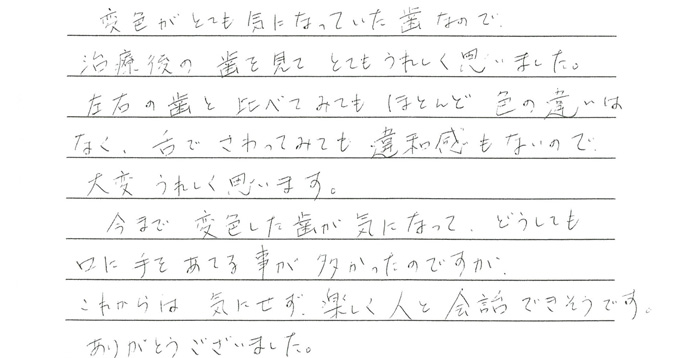 変色がとても気になっていた歯なので、
治療後の歯を見てとてもうれしく思いました。
左右の歯と比べてみてもほとんど色の違いは
なく、舌でさわってみても違和感もないので、
大変うれしく思います。
今まで変色した歯が気になって、どうしても
口に手をあてる事が多かったのですが、
これからは気にせず、楽しく人と会話できそうです。
ありがとうございました。